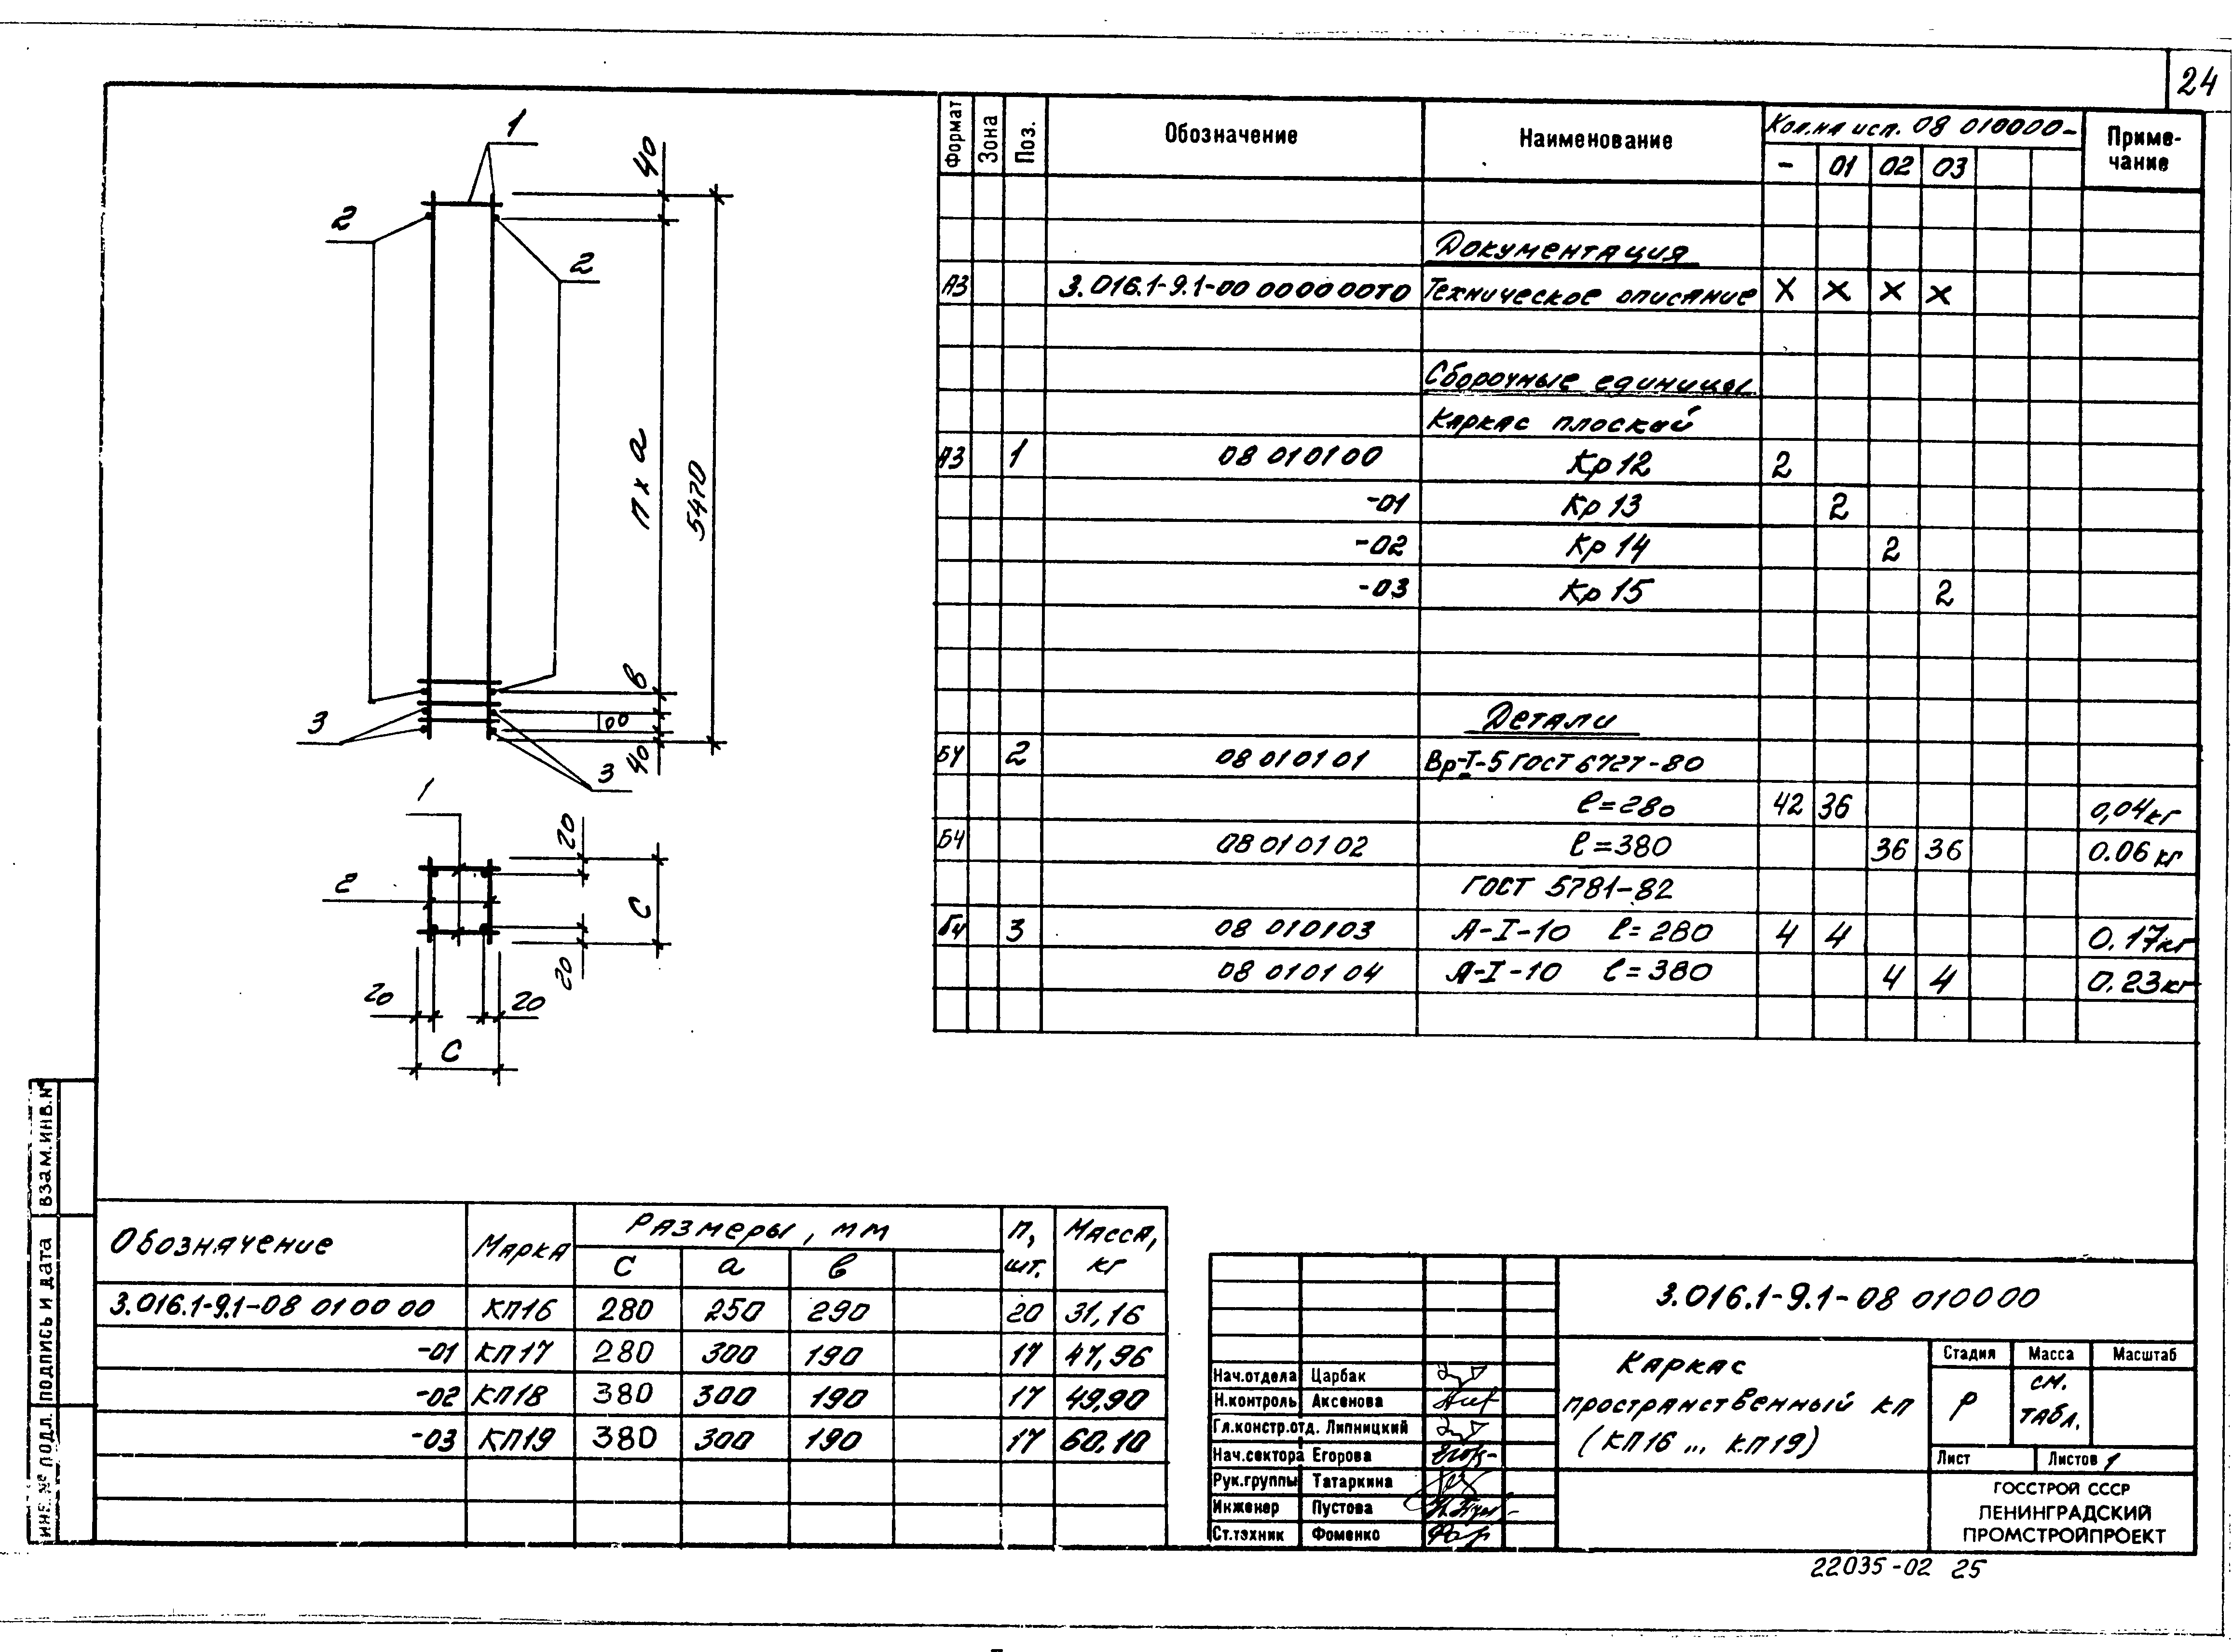 24
1
2
2
40
п x а
5470
в
100
40
3
3
1
2
20
С
20
20
20
С
Формат Зона Поз. Обозначение Наименование Кол. на исп. 08 010000- Приме-
чание
- 01 02 03
Документация
А3 3.016.1-9.1-00 000000ТО Техническое описание X X X X
Сборочные единицы
Каркас плоский
А3 1 08 010100 Кр 12 2
-01 Кр 13 2
-02 Кр 14 2
-03 Кр 15 2
Детали
БЧ 2 08 010101 Вр-I-5 ГОСТ 6727-80
ℓ=280 42 36 0,04кг
БЧ 08 010102 ℓ=380 36 36 0.06 кг
ГОСТ 5781-82
БЧ 3 08 010103 А-I-10 ℓ=280 4 4 0.17кг
08 010104 А-I-10 ℓ=380 4 4 0.23кг
Обозначение Марка Размеры, мм п, шт. Масса, кг
С а в
3.016.1-9.1-08 010000 КП16 280 250 290 20 31,16
-01 КП17 280 300 190 17 47,96
-02 КП18 380 300 190 17 49,90
-03 КП19 380 300 190 17 60.10
3.016.1-9.1-08 010000
Каркас
пространственный КП
(КП16 ... КП19)
Стадия Масса Масштаб
Р см.
табл.
Лист Листов 1
ГОССТРОЙ СССР
ЛЕНИНГРАДСКИЙ
ПРОМСТРОЙПРОЕКТ
Нач.отдела Царбак
Н.контроль Аксенова
Гл.констр.отд. Липницкий
Нач.сектора Егорова
Рук.группы Татаркина
Инженер Пустова
Ст.тэхник Фоменко
ИНВ.№ ПОДЛ. ПОДПИСЬ И ДАТА ВЗАМ.ИНВ.№
22035-02 25